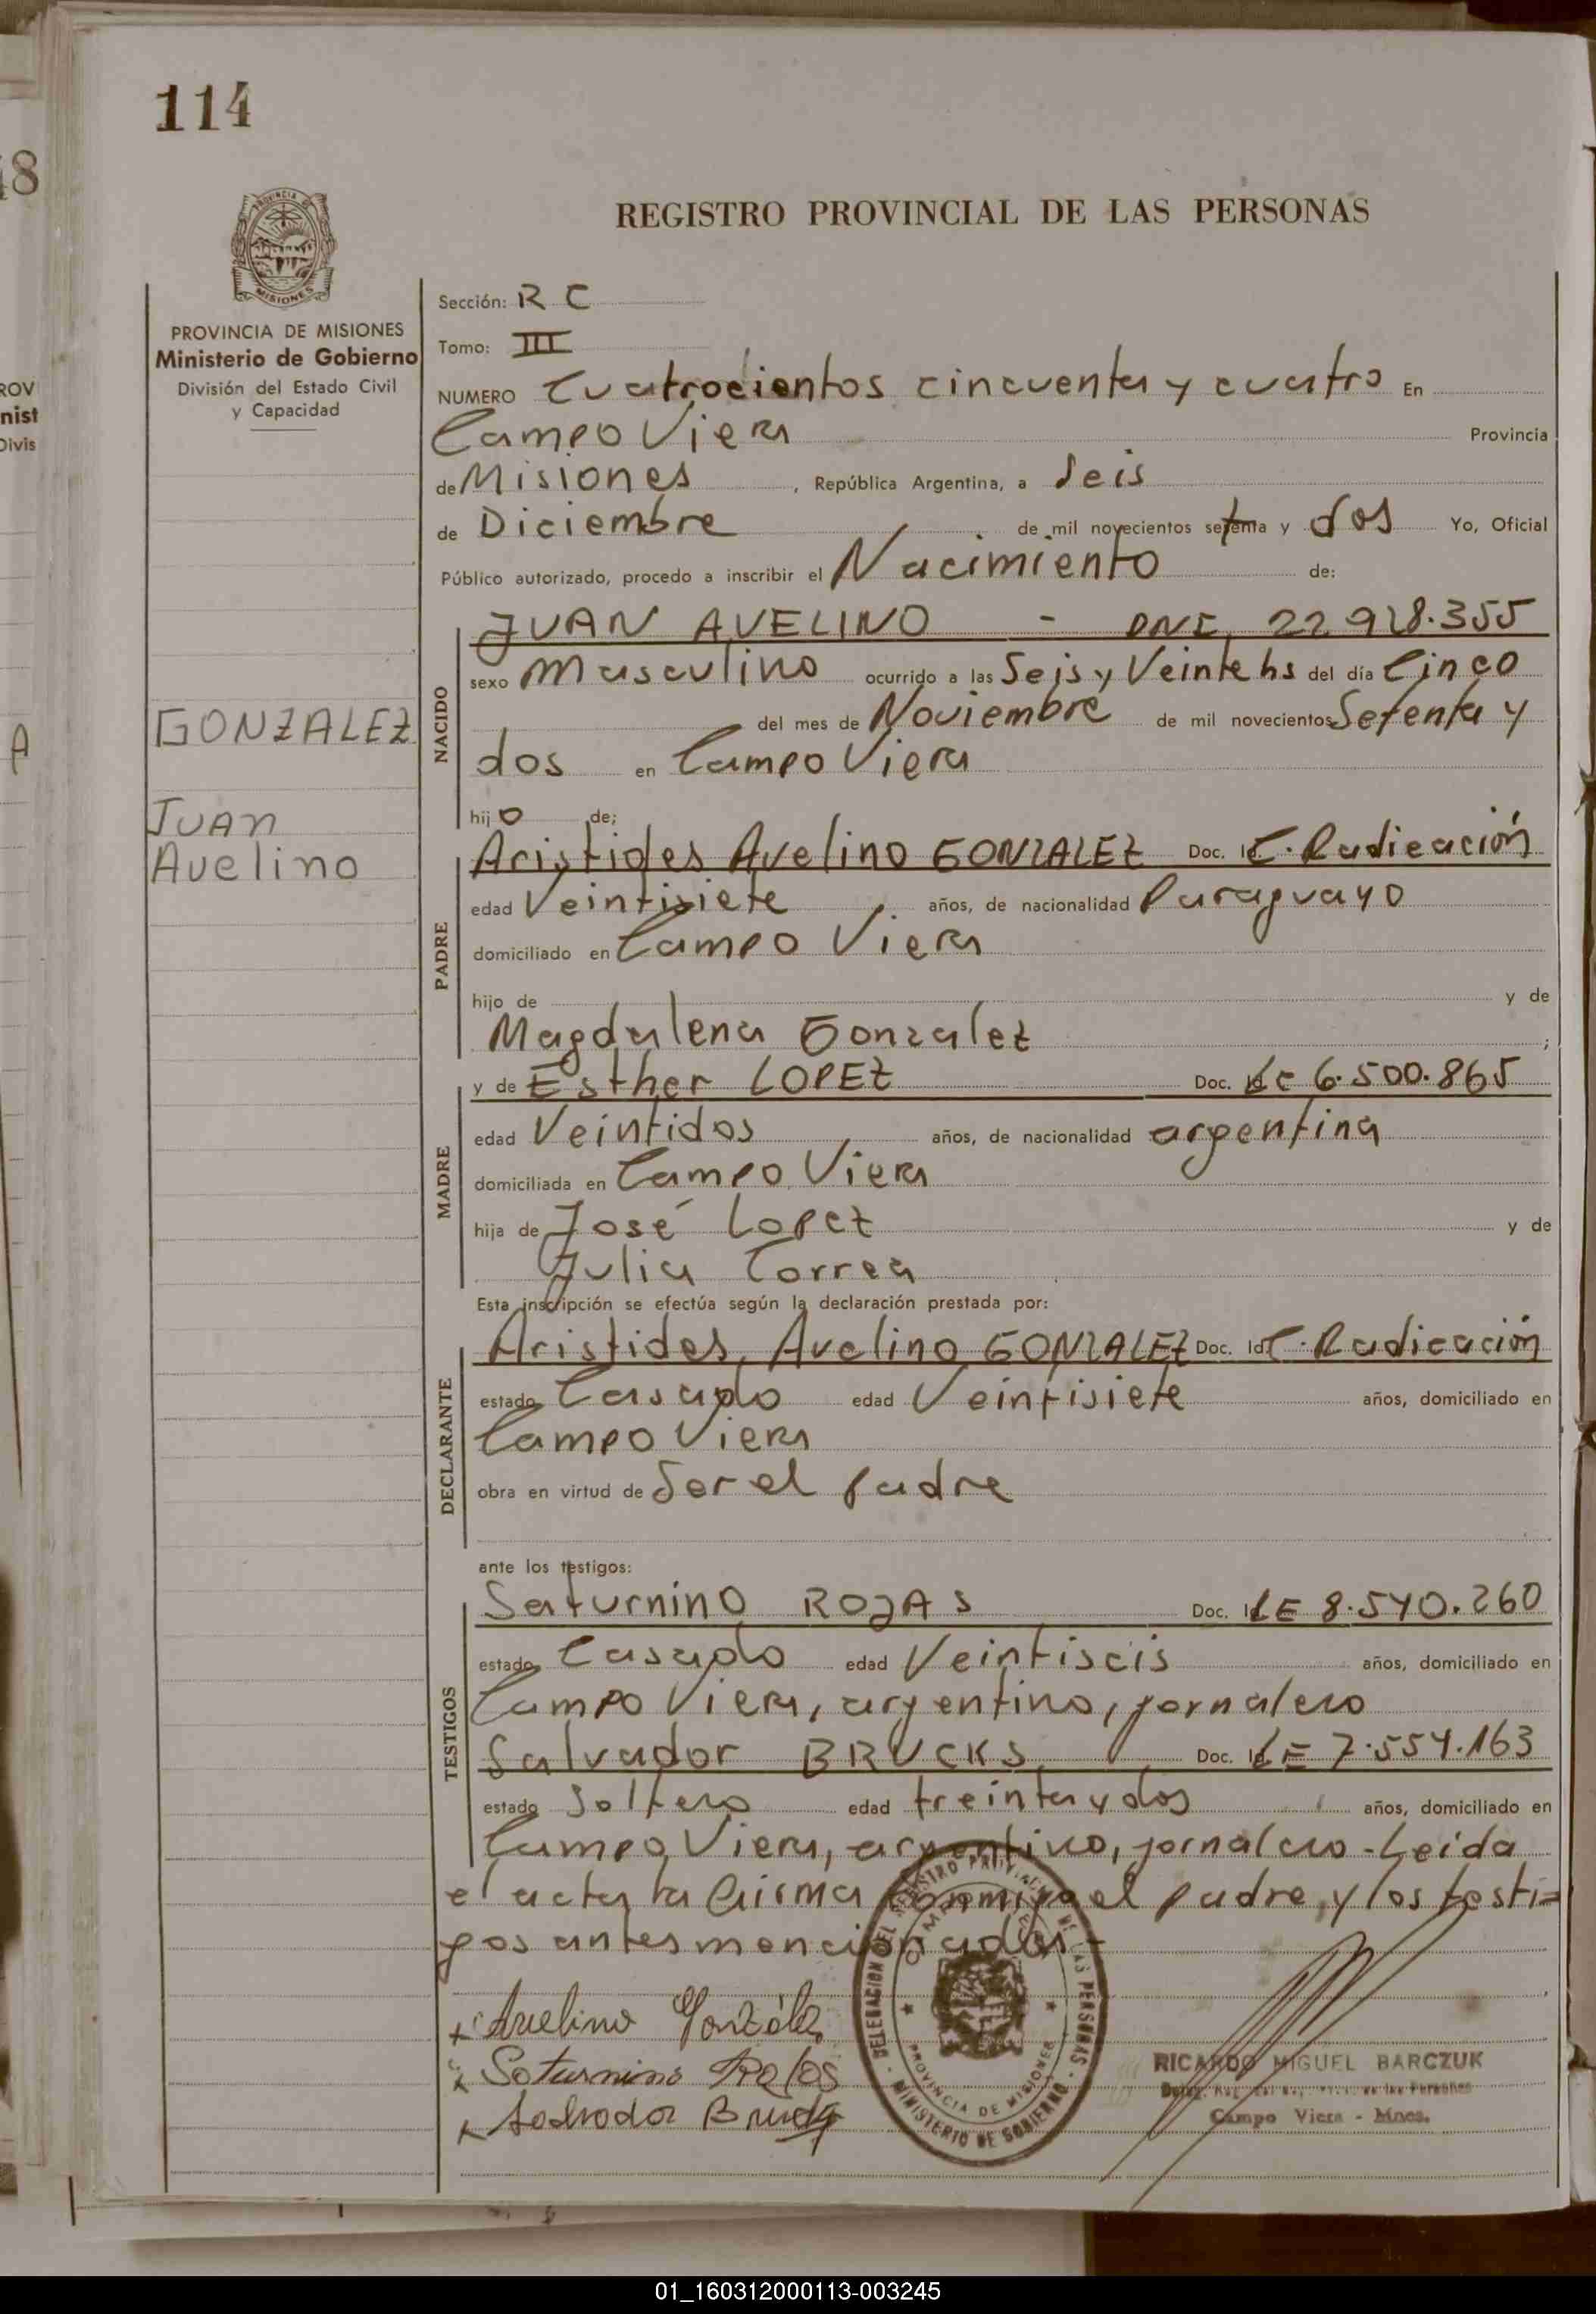 114
REGISTRO PROVINCIAL DE LAS PERSONAS
PROVINCIA DE MISIONES
Ministerio de Gobierno
División del Estado Civil
y Capacidad
GONZALEZ
Juan
Avelino
Sección: R C
Tomo: III
NUMERO Cuatrocientos cincuenta y cuatro En
Campo Viera Provincia
de Misiones, República Argentina, a Seis
de Diciembre de mil novecientos setenta y dos Yo, Oficial
Público autorizado, procedo a inscribir el Nacimiento de:
JUAN AVELINO - DNI. 22.928.355
NACIDO
sexo Masculino ocurrido a las Seis y Veinte hs del día Cinco
del mes de Noviembre de mil novecientos Setenta y
dos en Campo Viera
hijo de;
PADRE
Aristides Avelino GONZALEZ Doc. Id. C. Radicación
edad Veintisiete años, de nacionalidad Paraguayo
domiciliado en Campo Viera
hijo de y de
Magdalena Gonzalez ;
MADRE
y de Esther LOPEZ Doc. LC 6.500.865
edad Veintidos años, de nacionalidad argentina
domiciliada en Campo Viera
hija de José Lopez y de
Julia Correa
Esta inscripción se efectúa según la declaración prestada por:
DECLARANTE
Aristides Avelino GONZALEZ Doc. Id. C. Radicación
estado Casado edad Veintisiete años, domiciliado en
Campo Viera
obra en virtud de Ser el padre
ante los testigos:
TESTIGOS
Saturnino ROJAS Doc. LE 8.540.260
estado Casado edad Veintiseis años, domiciliado en
Campo Viera, argentino, jornalero
Salvador BRUCKS Doc. Id. LE 7.554.163
estado Soltero edad treinta y dos años, domiciliado en
Campo Viera, argentino, jornalero - Leida
el acta la firma conmigo el padre, y los testi=
gos antes mencionados -
x Avelino González
x Saturnino Rojas
x Salvador Brucks
DELEGACION DEL REGISTRO PROVINCIAL DE LAS PERSONAS
CAMPO VIERA
PROVINCIA DE MISIONES
MINISTERIO DE GOBIERNO
RICARDO MIGUEL BARCZUK
de las Personas
Campo Viera - Mnes.
18
ROV
nist
Divis
A
01_160312000113-003245